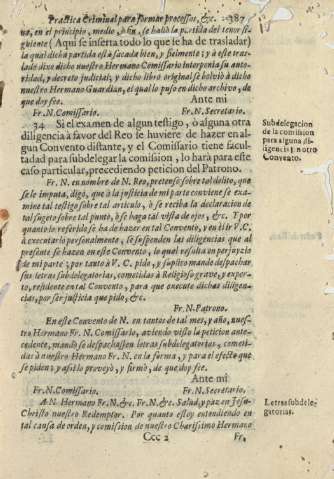 Practica Criminal para formar processos, &c. 387
na, en el principio, medio, ò fin, se halló la partida del tenor si-
guiente (Aqui se inserta todo lo que se ha de trasladar)
la qual dicha partida està sacada bien, y fielmente; y a este tras-
lado dixo dicho nuestro Hermano Comissario interponia su auto-
ridad, y decreto judicial; y dicho libro original se bolviò à dicho
nuestro Hermano Guardian, el qual lo puso en dicho archivo, de
que doy fee. Ante mi
Fr. N. Comissario. Fr. N. Secretario.
34 Si el examen de algun testigo, ò alguna otra
diligencia à favor del Reo se huviere de hazer en al-
gun Convento distante, y el Comissario tiene facul-
tad para subdelegar la comision, lo harà para este
caso particular, precediendo peticion del Patrono.
Subdelegacion
de la comission
para alguna di-
ligencia en otro
Convento.
Fr. N. en nombre de N. Reo, preteso sobre tal delito, que
se le imputa, digo, que à la justicia de mi parte conviene se exa-
mine tal testigo sobre tal articulo, ò se reciba la declaracion de
tal sugeto sobre tal punto, ò se haga tal vista de ojos, &c. Y por
quanto lo referido se ha de hazer en tal Convento, y en ir V. C.
à executarlo personalmente, se suspenden las diligencias que al
presente se hazen en este Convento, lo qual resulta en perjuyzio
de mi parte; por tanto à V. C. pido, y suplico mande despachar
sus letras subdelegatorias, cometidas à Religioso grave, y exper-
to, residente en tal Convento, para que execute dichas diligen-
cias, por ser justicia que pido, &c.
Fr. N. Patrono.
En este Convento de N. en tantos de tal mes, y año, nues-
tro Hermano Fr. N. Comissario, aviendo visto la peticion ante-
cedente, mandò se despachassen letras subdelegatorias, cometi-
das à nuestro Hermano Fr. N. en la forma, y para el efecto que
se piden; y assi lo proveyò, y firmò, de que doy fee.
Ante mi
Fr. N. Comissario. Fr. N. Secretario.
A N. Hermano Fr. N. &c. Fr. N. &c. Salud, y paz en Jesu-
Christo nuestro Redemptor. Por quanto estoy entendiendo en
tal causa de orden, y comision de nuestro Charissimo Hermano
Letras subdele-
gatorias.
Ccc 2 Fr.